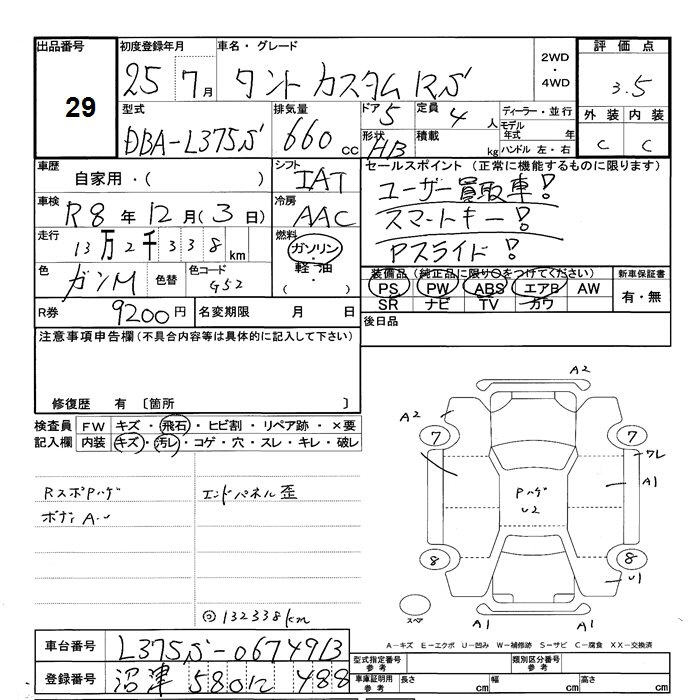 出品番号
29
初度登録年月
25 7月
車名・グレード
タント カスタム RS
2WD
・
4WD
評価点
3.5
外装 内装
C C
型式
DBA-L375S
排気量
660 cc
ドア 5
形状 HB
定員 4 人
積載 kg
ディーラー・並行
モデル年式 年
ハンドル 左・右
車歴
自家用・( )
シフト
IAT
車検
R8年 12月(3日)
冷房
AAC
走行
13万2千338km
燃料
ガソリン・
軽油・
( )
色
ガンM
色替
色コード
G52
R券 9200円
名変期限 月 日
セールスポイント (正常に機能するものに限ります)
ユーザー買取車!
スマートキー!
Pスライド!
装備品(純正品に限り○をつけてください)
PS PW ABS エアB AW
SR ナビ TV カワ
新車保証書
有・無
後日品
注意事項申告欄(不具合内容等は具体的に記入して下さい)
修復歴 有 〔箇所 〕
検査員記入欄
FW キズ・飛石・ヒビ割・リペア跡・×要
内装 キズ・汚レ・コゲ・穴・スレ・キレ・破レ
RスポPハゲ
ボディA・U
エンドパネル歪
◎132338km
A2
A2
7
7
ワレ
A1
Pハゲ
U2
8
8
U1
スペア
A1
A1
A-キズ E-エクボ U-凹み W-補修跡 S-サビ C-腐食 XX-交換済
車台番号 L375S-0674913
登録番号 沼津 580 488
型式指定番号
参考
類別区分番号
参考
車庫証明用
参考
長さ cm
幅 cm
高さ cm